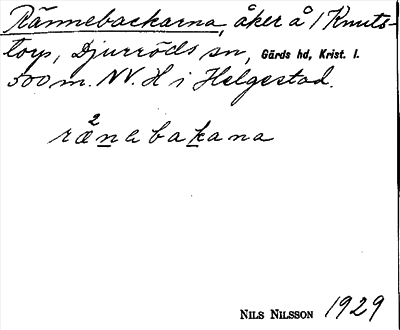 Rännebackarna, åker å 1 Knuts-
torp, Djurröds sn, Gärds hd, Krist. l.
500 m. NV. H i Helgestad.
2
rænebakana
NILS NILSSON 1929